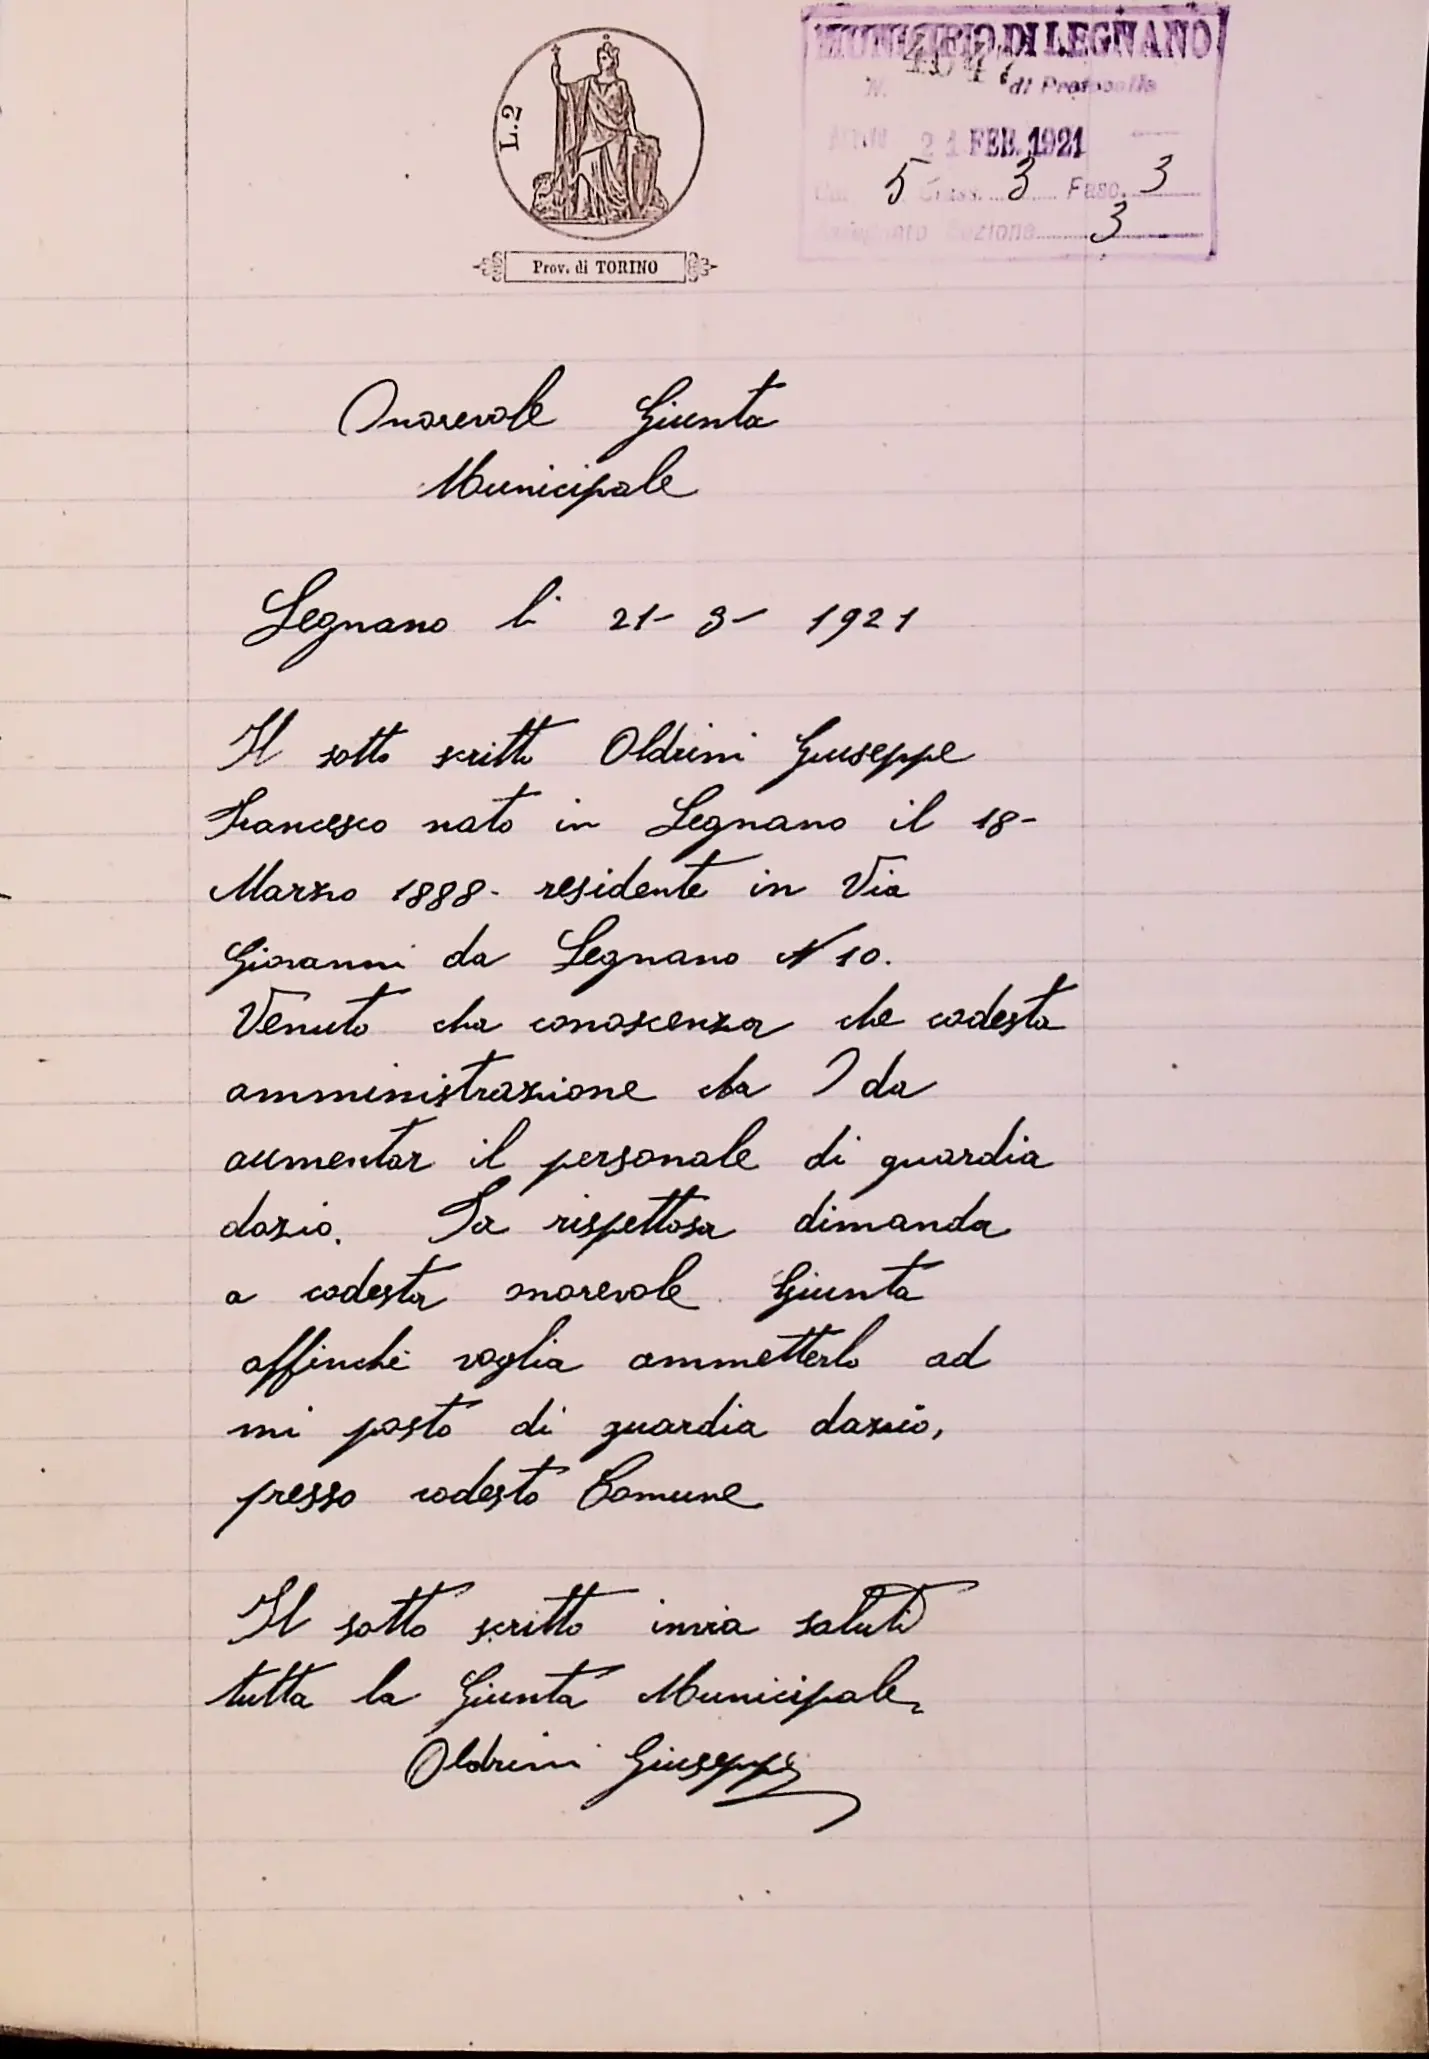 L.2
Prov. di TORINO
MUNICIPIO DI LEGNANO
N. 4547 di Protocollo
21 FEB. 1921
Cat. 5 Class. 3 Fasc. 3
Sezione 3
Onorevole Giunta
Municipale
Legnano li 21- 3- 1921
Il sotto scritto Oldrini Giuseppe
Francesco nato in Legnano il 18-
Marzo 1888- residente in Via
Giovanni da Legnano N 10.
Venuto cha conoscenza che codesta
amministrazione cha da
aumentar il personale di guardia
dazio. Fa rispettosa dimanda
a codesta onorevole Giunta
affinchè voglia ammetterlo ad
mi posto di guardia dazio,
presso codesto Comune
Il sotto scritto invia saluti
tutta la Giunta Municipale,
Oldrini Giuseppe